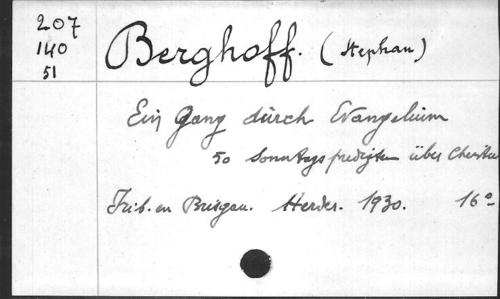 207
140
51
Berghoff. (Stephan)
Ein Gang durch Evangelium
50 Sonntagspredigten über Christus
Frib. en Brisgau. Herder. 1930. 16°